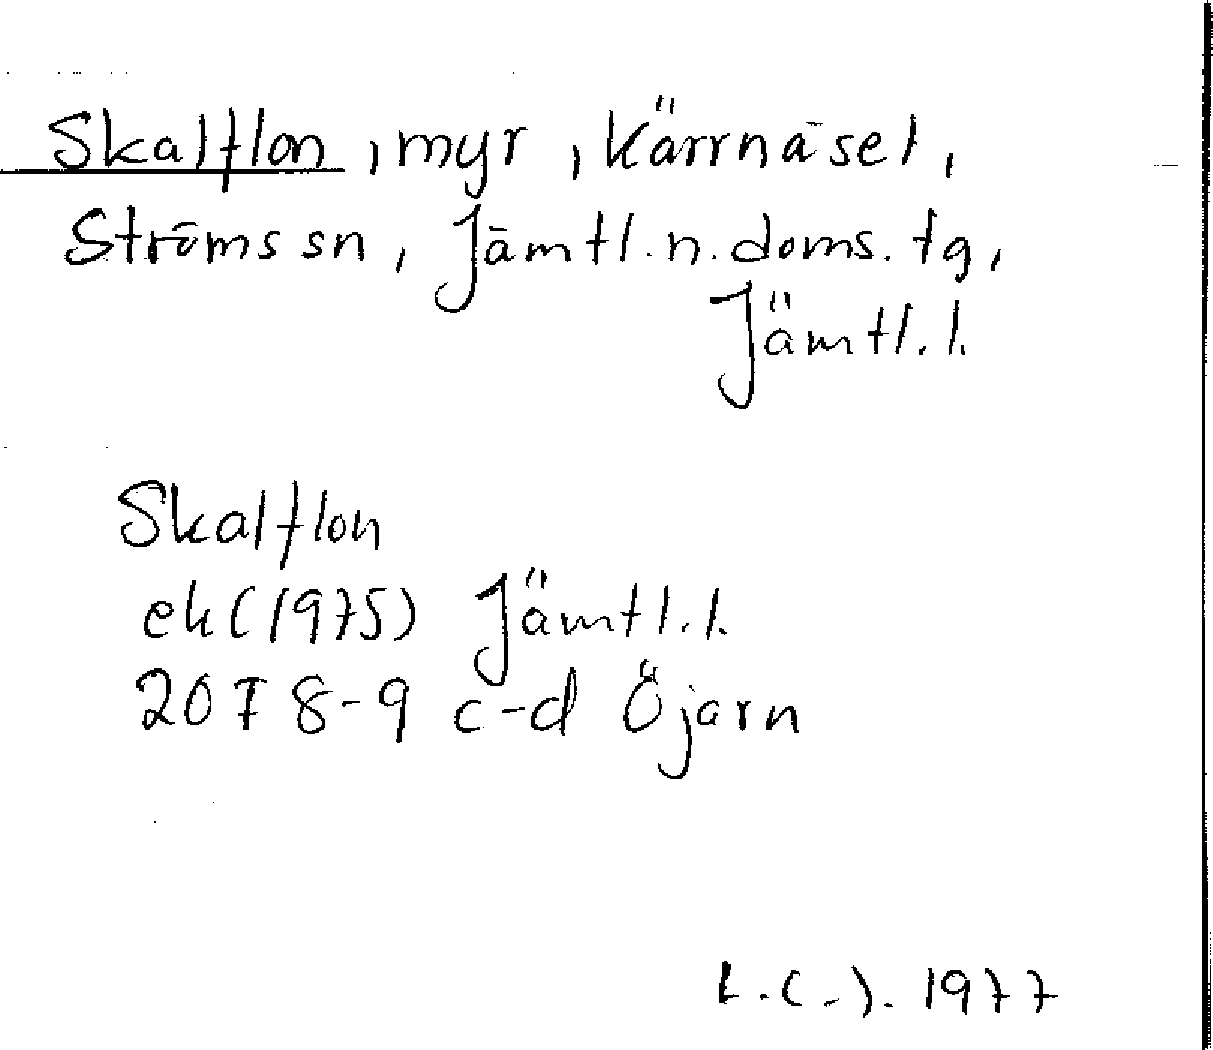 Skalflon, myr, Kärrnäset,
Ströms sn, Jämtl.n.doms.tg,
Jämtl.l.
Skalflon
ek(1975) Jämtl.l.
20F 8-9 c-d Öjarn
1977